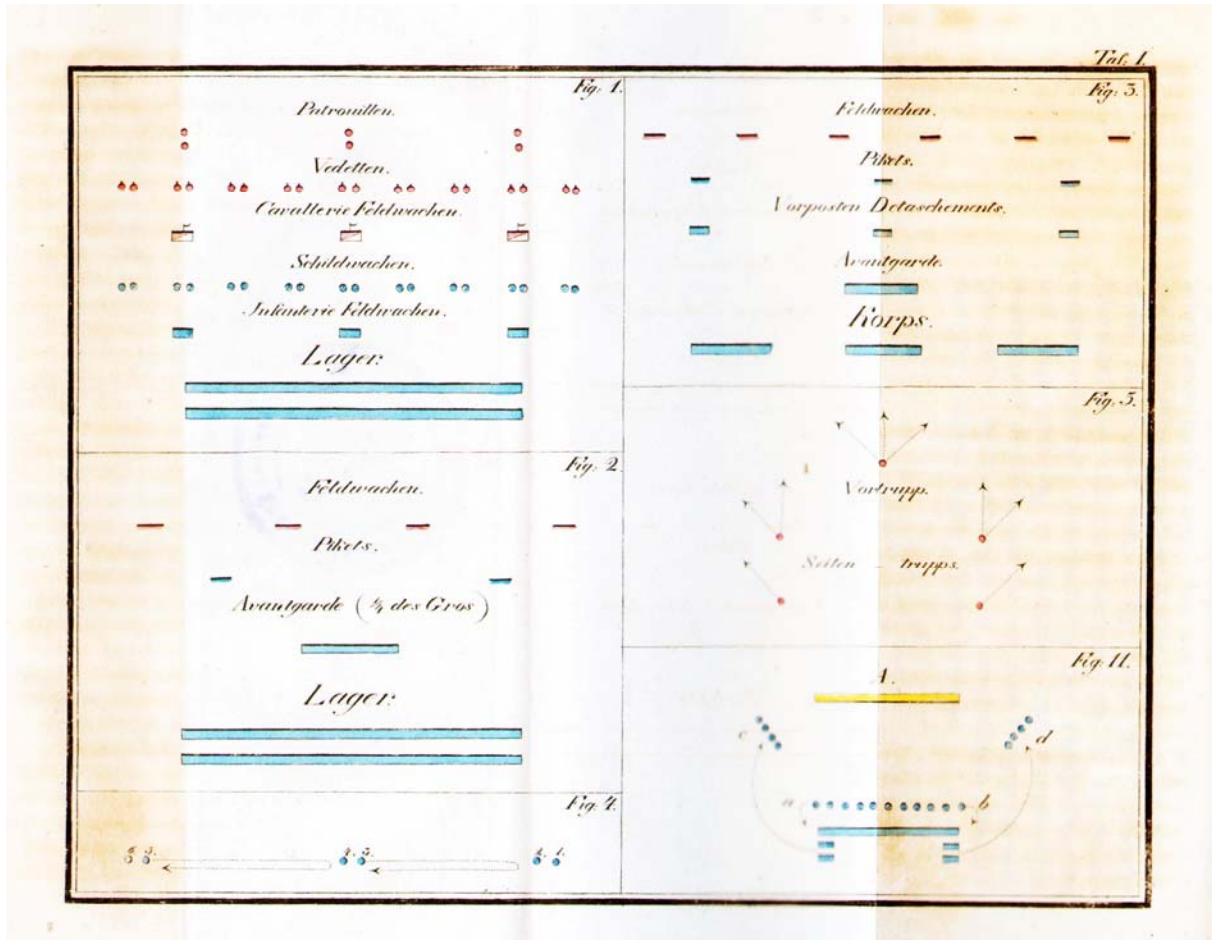 Taf. 1.
Fig: 1.
Patrouillen.
Vedetten.
Cavallerie Feldwachen.
Schildwachen.
Infanterie Feldwachen.
Lager.
Fig: 2.
Feldwachen.
Pikets.
Avantgarde (¼ des Gros)
Lager.
Fig: 4.
3.
4. 3.
2. 1.
Fig: 3.
Feldwachen.
Pikets.
Vorposten Detaschements.
Avantgarde.
Korps.
Fig: 5.
Vortrupp.
Seiten - trupps.
Fig: 11.
A.
c
d
a
b